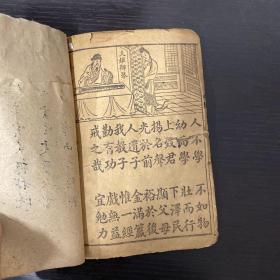 人不學 不如物
幼而學 壯而行
上致君 下澤民
揚名聲 顯父母
光於前 裕於後
人遺子 金滿籯
我教子 惟一經
勤有功 戲無益
戒之哉 宜勉力